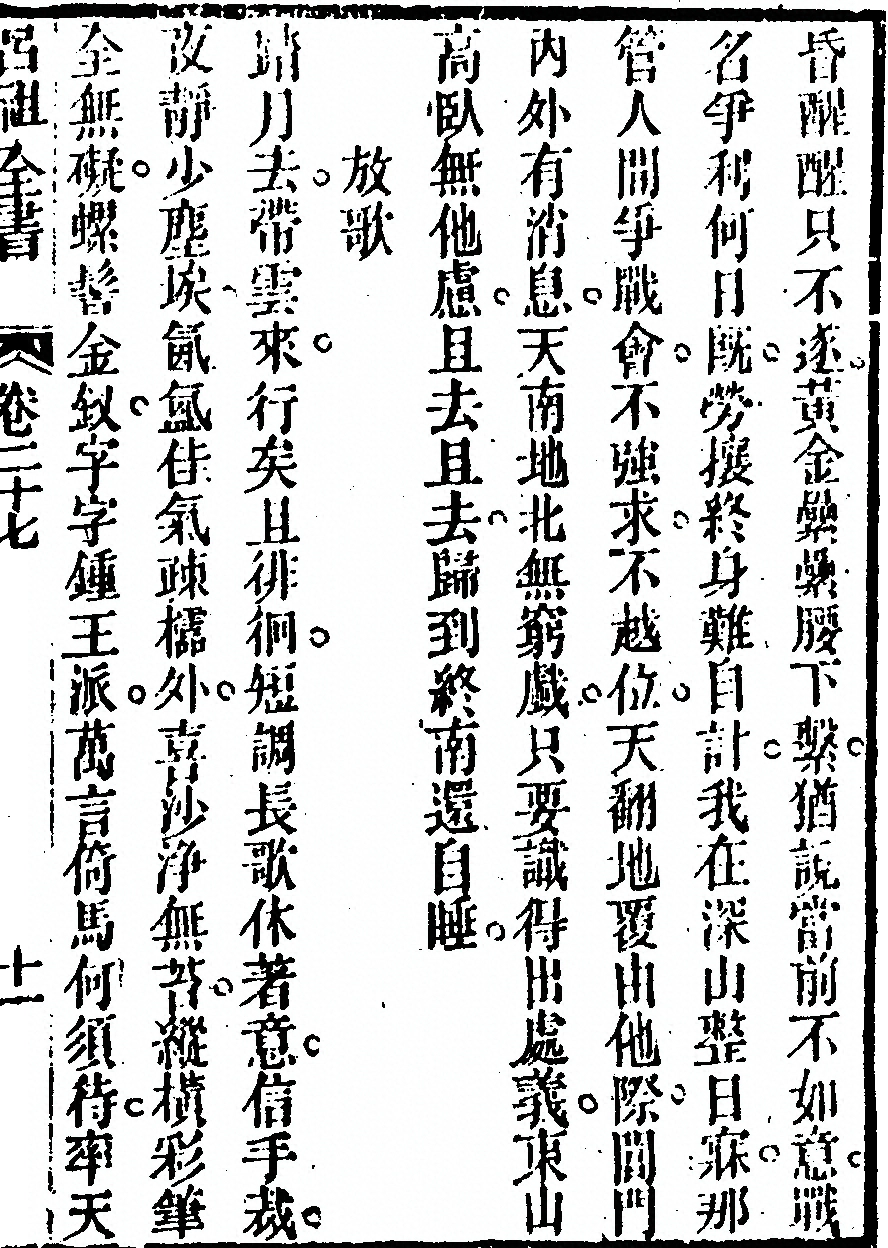 昏醒醒只不逐黃金纍纍腰下繫猶說當前不如意戰
名爭利何日旣勞攘終身難自計我在深山整日寐那
管人間爭戰會不強求不越位天翻地覆由他際閶門
內外有消息天南地北無窮戲只要識得出處義東山
高臥無他慮且去且去歸到終南還自睡
放歌
踏月去帶雲來行矣且徘徊短調長歌休著意信手裁
改靜少塵埃氤氳佳氣疎櫺外喜沙淨無苔縱橫彩筆
全無礙螺髻金釵字字鍾王派萬言倚馬何須待率天
呂祖全書 卷二十七 十一